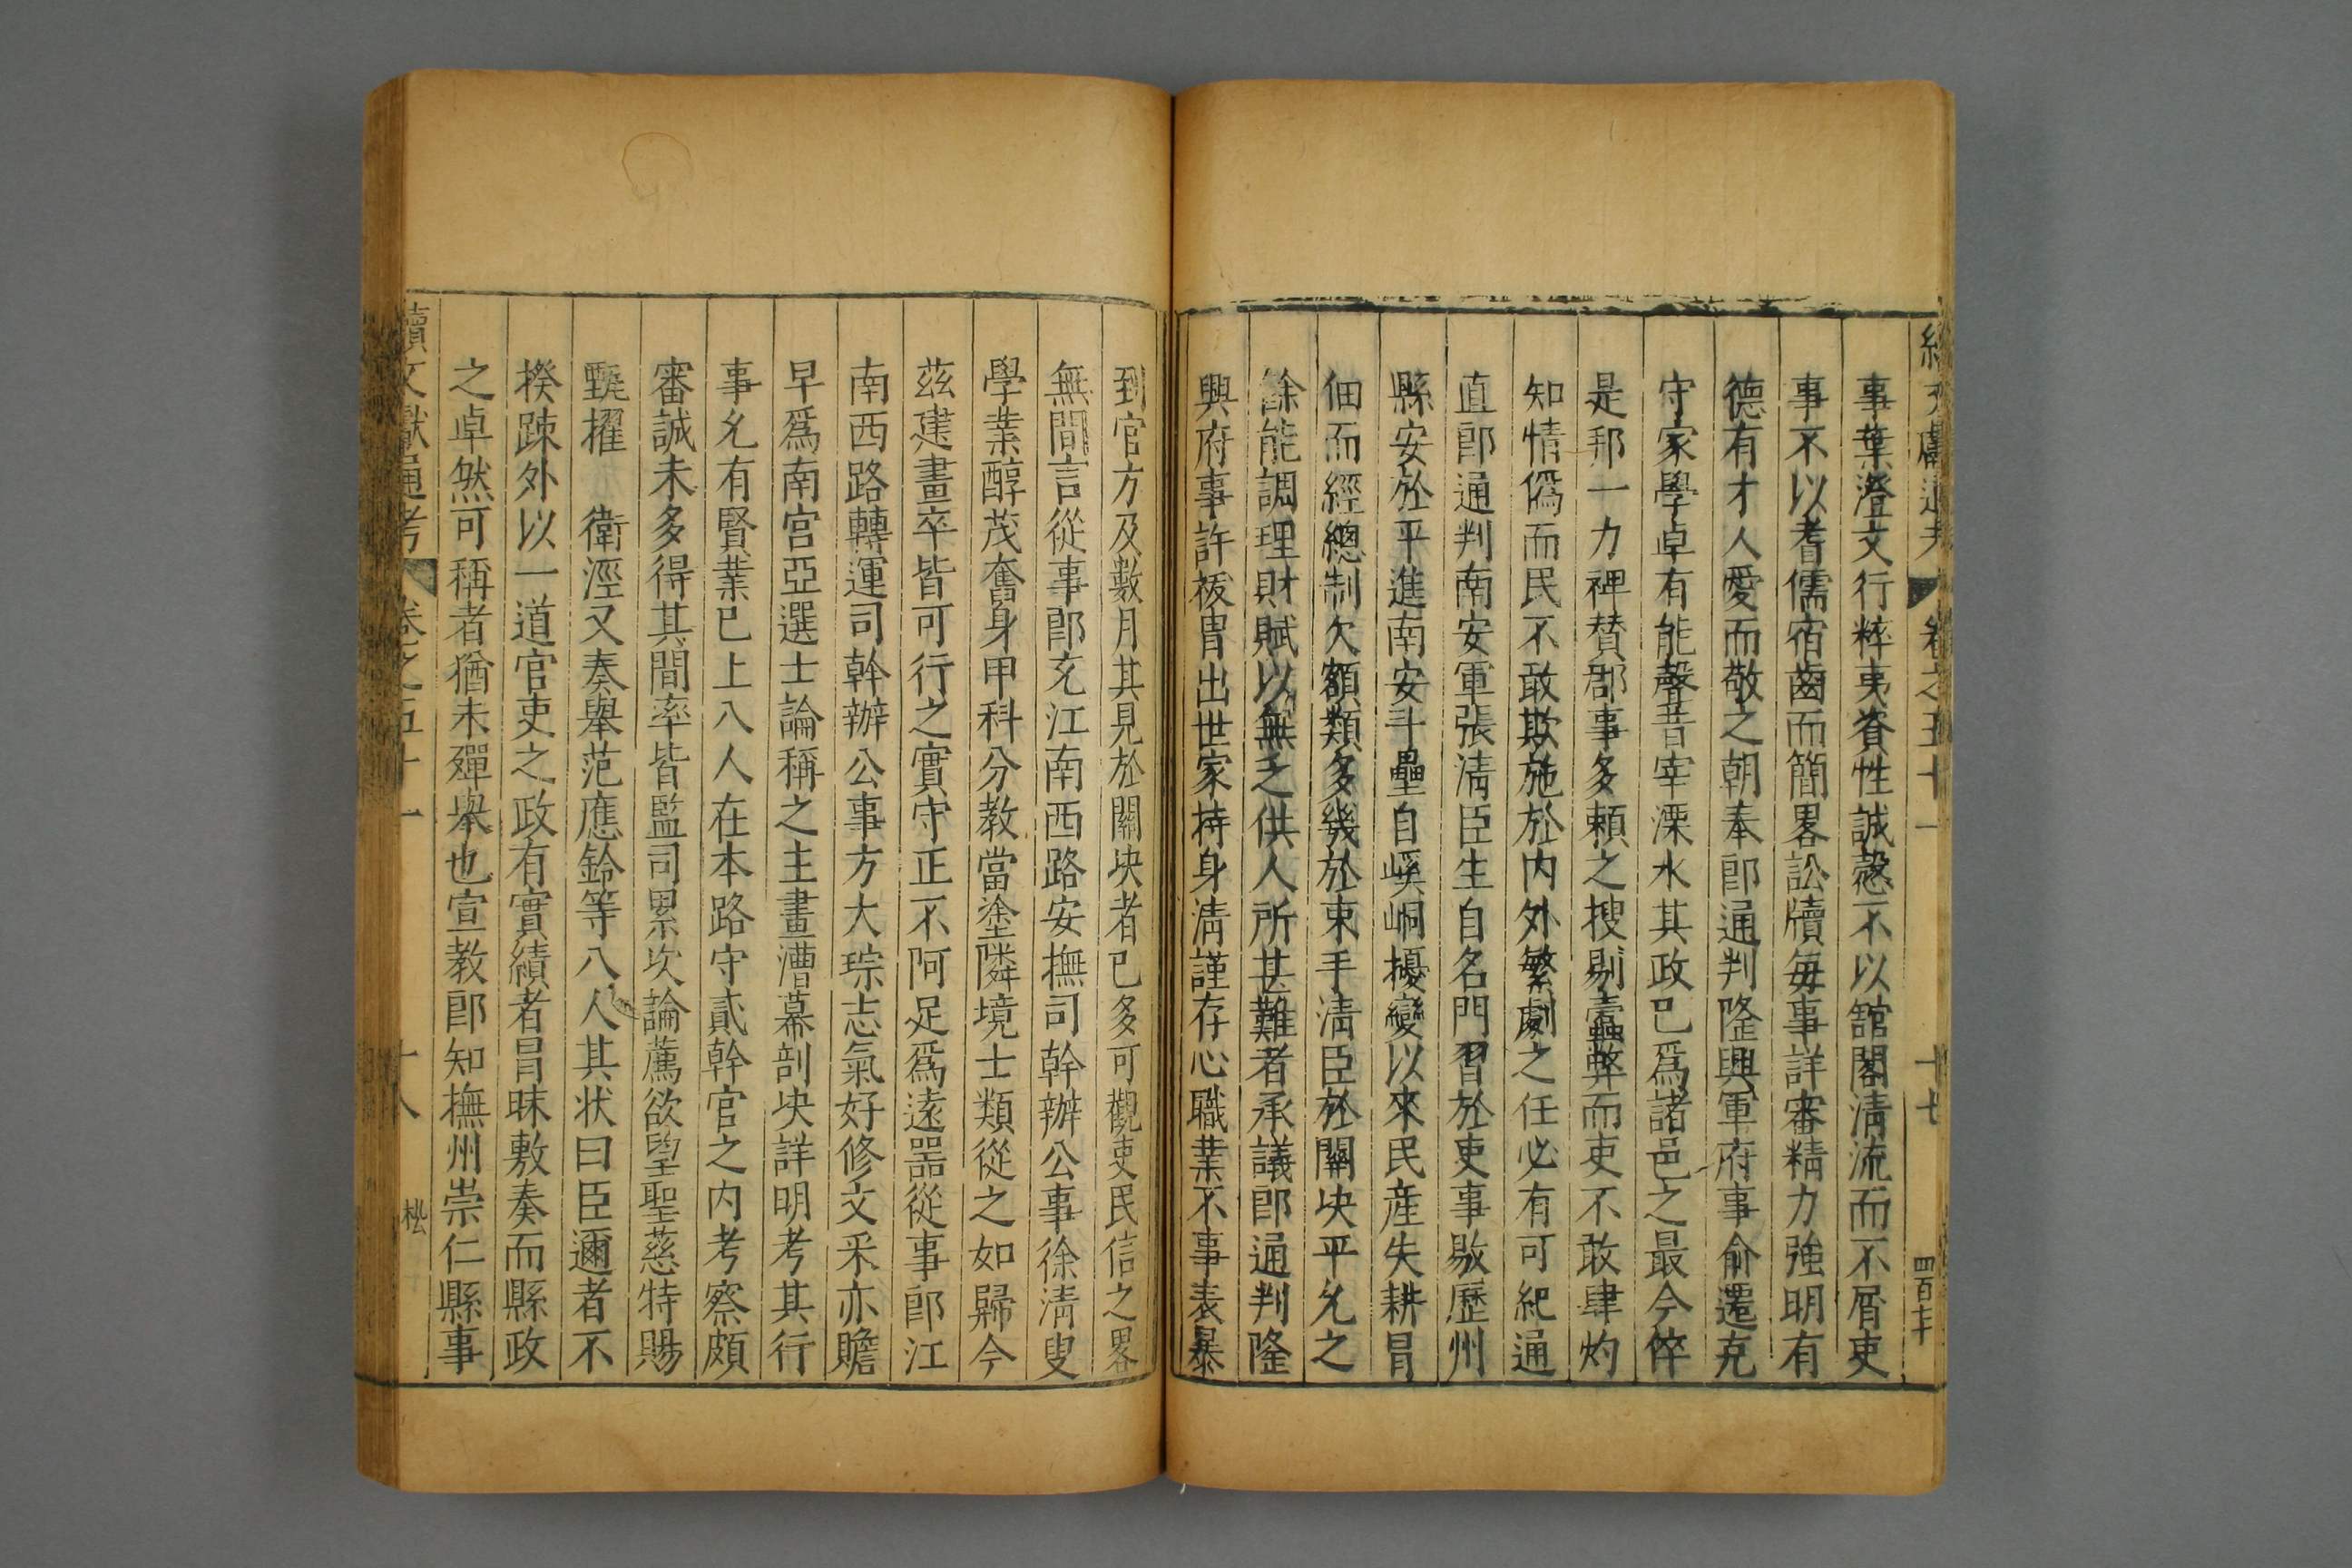 事葉澄文行粹夷資性誠慤不以舘閣淸流而不屑吏
事不以耆儒宿齒而簡畧訟牘毎事詳審精力強明有
德有才人愛而敬之朝奉郎通判隆興軍府事俞遷克
守家學卓有能聲昔宰溧水其政已爲諸邑之最今倅
是邦一力裨賛郡事多頼之搜剔蠧弊而吏不敢肆灼
知情僞而民不敢欺施於内外繁劇之任必有可紀通
直郎通判南安軍張淸臣生自名門習於吏事敭歷州
縣安於平進南安斗壘自峒擾變以來民産失耕冒
佃而經總制欠額類多幾於束手淸臣於關决平允之
餘能調理財賦以無乏供人所甚難者承議郎通判隆
興府事許祓胄出世家持身淸謹存心職業不事表暴
到官方及數月其見於關决者已多可觀吏民信之畧
無間言從事郎充江南西路安撫司幹辦公事徐淸叟
學業醇茂奮身甲科分教當塗隣境士類從之如歸今
茲建畫卒皆可行之實守正不阿足爲遠器從事郎江
南西路轉運司幹辦公事方大琮志氣好修文采亦贍
早爲南宮亞選士論稱之主畫漕幕剖决詳明考其行
事允有賢業已上八人在本路守貳幹官之内考察頗
審誠未多得其間率皆監司累次論薦欲望聖慈特賜
甄擢　衛涇又奏舉范應鈴等八人其状曰臣邇者不
揆踈外以一道官吏之政有實績者冒昧敷奏而縣政
之卓然可稱者猶未殫舉也宣教郎知撫州崇仁縣事
續文獻通考　卷之五十一　十八　松